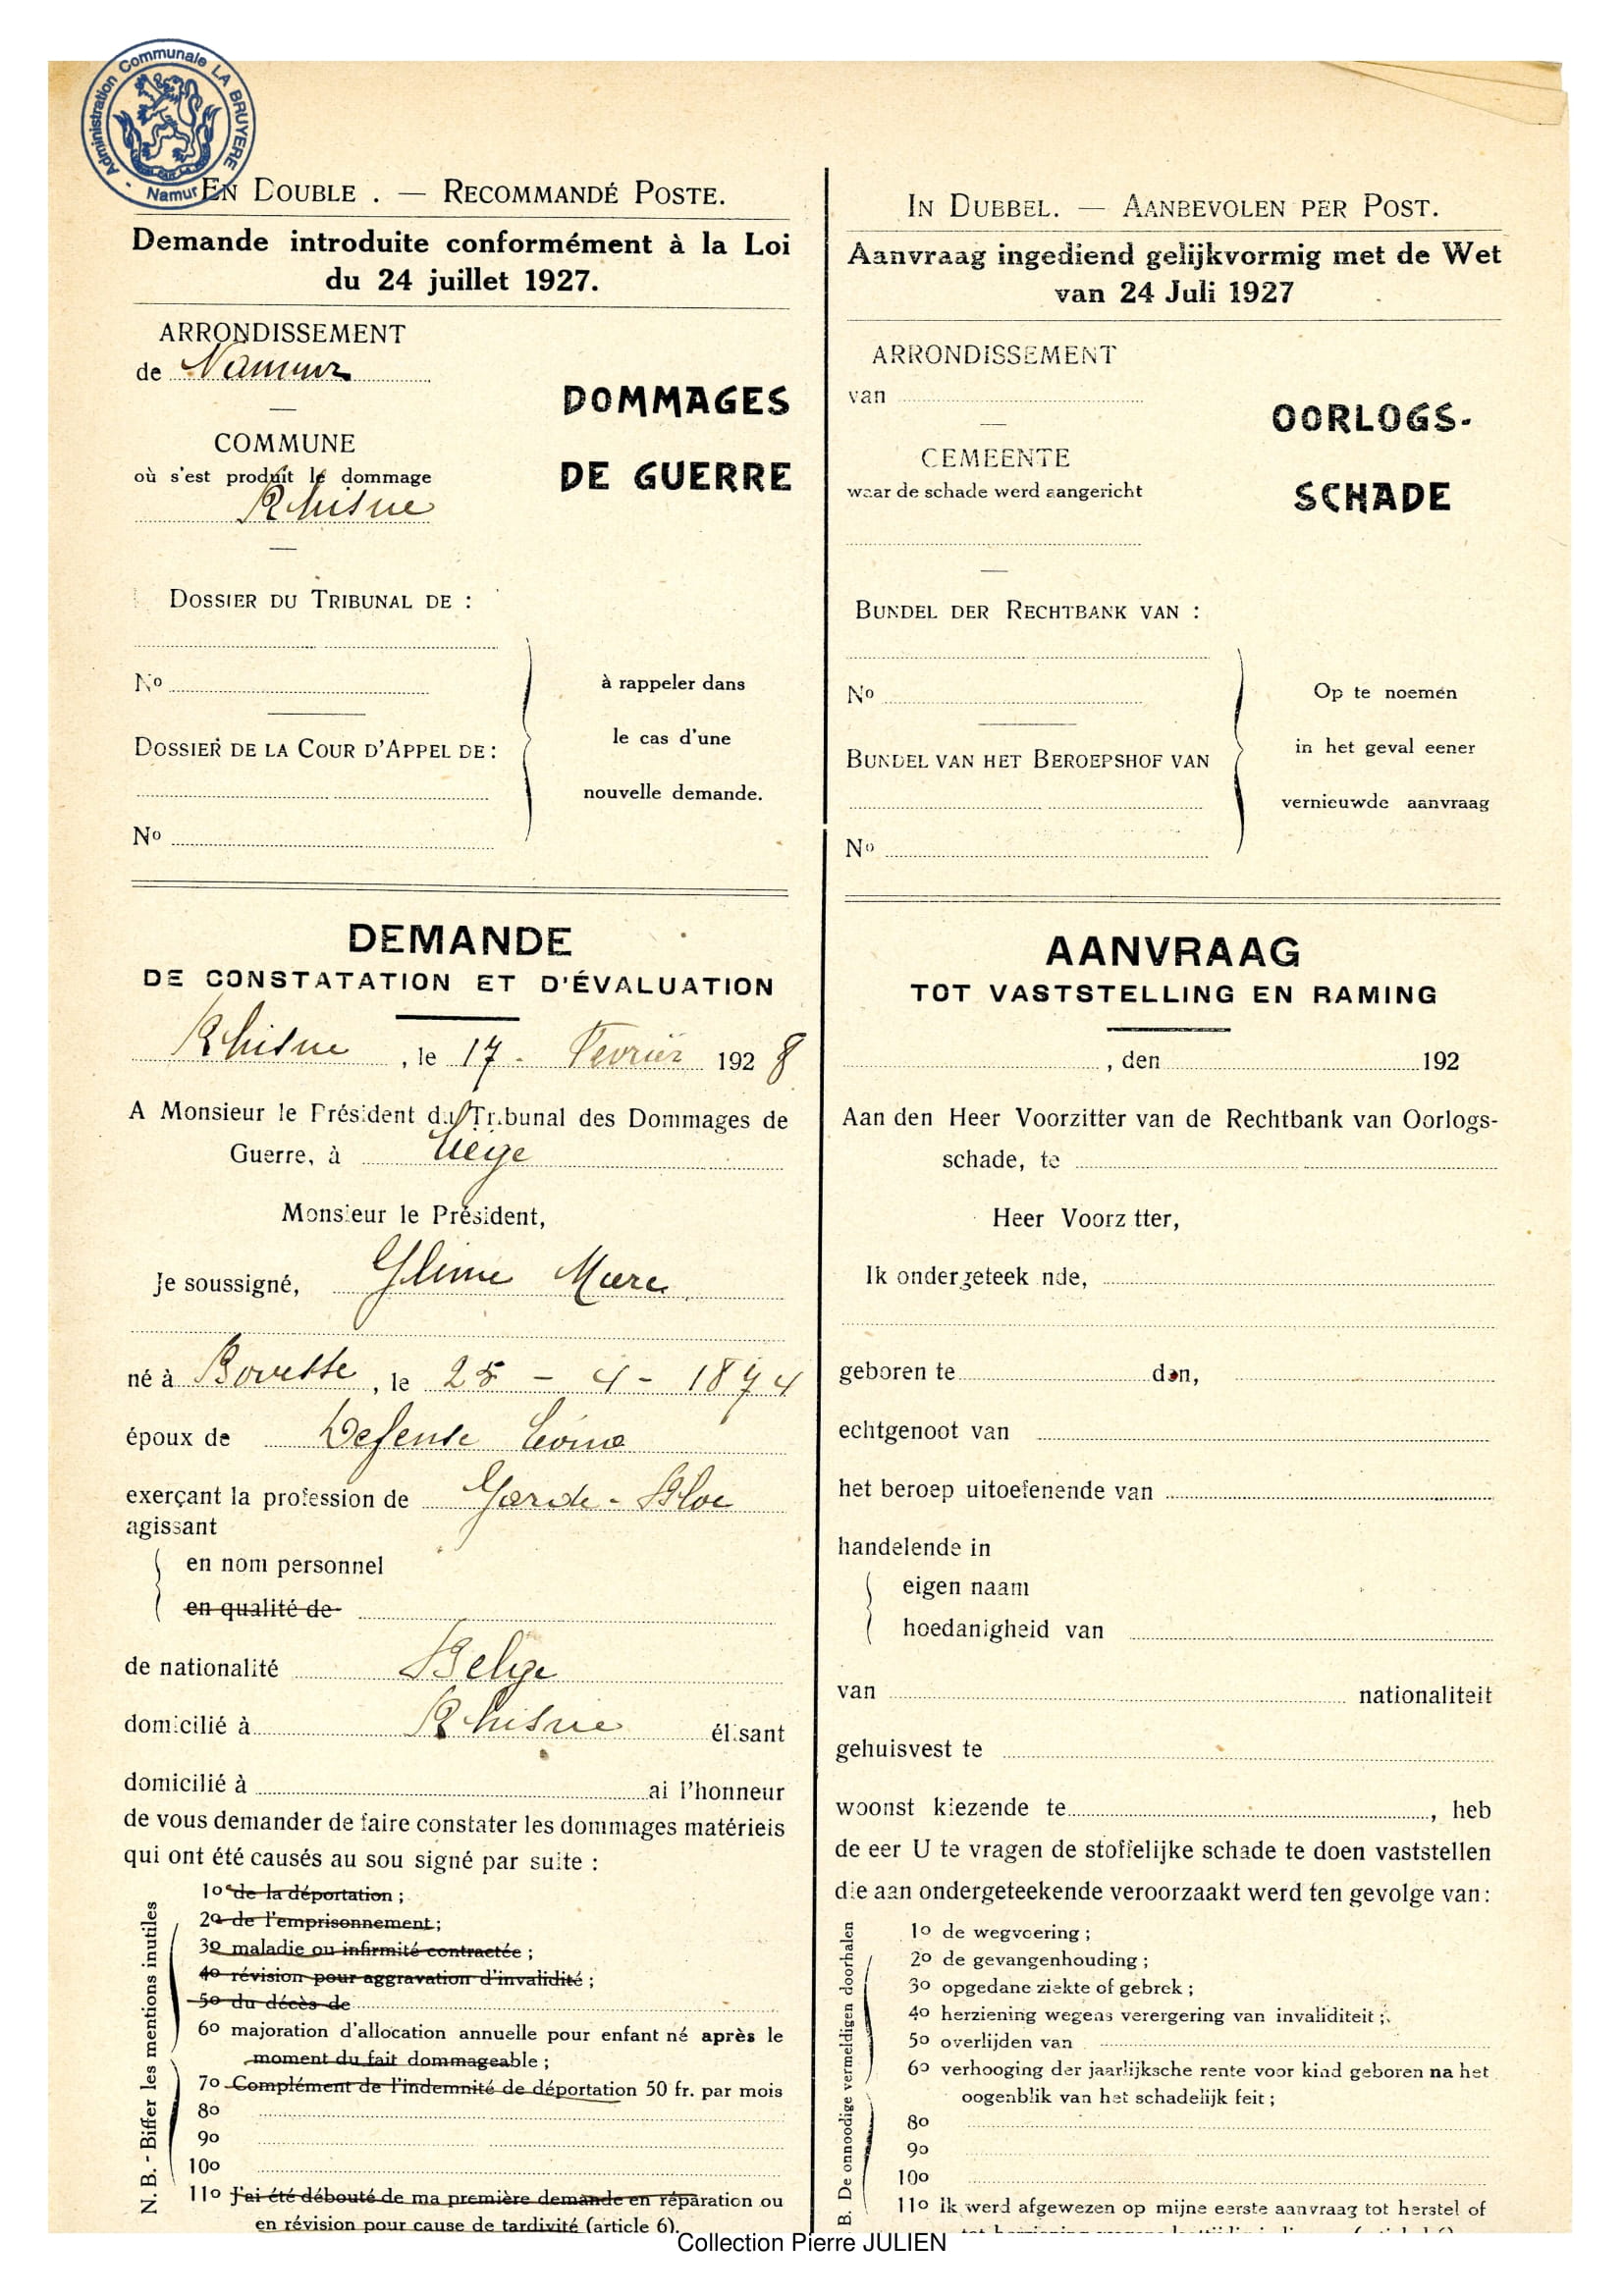 Administration Communale LA BRUYERE - Namur
EN DOUBLE . — RECOMMANDÉ POSTE.
Demande introduite conformément à la Loi
du 24 juillet 1927.
ARRONDISSEMENT
de Namur
COMMUNE
où s'est produit le dommage
Rhisne
DOMMAGES
DE GUERRE
DOSSIER DU TRIBUNAL DE :
No
DOSSIER DE LA COUR D'APPEL DE :
No
à rappeler dans
le cas d'une
nouvelle demande.
DEMANDE
DE CONSTATATION ET D'ÉVALUATION
Rhisne, le 17 - Fevrier 1928
A Monsieur le Président du Tribunal des Dommages de
Guerre, à Liége
Monsieur le Président,
Je soussigné, Glime Marc
né à Bovesse, le 25 - 4 - 1874
époux de Defense Léonie
exerçant la profession de Garde-Bloc
agissant
en nom personnel
en qualité de
de nationalité Belge
domicilié à Rhisne élisant
domicilié à ai l'honneur
de vous demander de faire constater les dommages matériels
qui ont été causés au sou signé par suite :
N. B. - Biffer les mentions inutiles
1o de la déportation ;
2o de l'emprisonnement ;
3o maladie ou infirmité contractée ;
4o révision pour aggravation d'invalidité ;
5o du décès de
6o majoration d'allocation annuelle pour enfant né après le
moment du fait dommageable ;
7o Complément de l'indemnité de déportation 50 fr. par mois
8o
9o
10o
11o J'ai été débouté de ma première demande en réparation ou
en révision pour cause de tardivité (article 6).
IN DUBBEL. — AANBEVOLEN PER POST.
Aanvraag ingediend gelijkvormig met de Wet
van 24 Juli 1927
ARRONDISSEMENT
van
CEMEENTE
waar de schade werd aangericht
OORLOGS-
SCHADE
BUNDEL DER RECHTBANK VAN :
No
BUNDEL VAN HET BEROEPSHOF VAN
No
Op te noemen
in het geval eener
vernieuwde aanvraag
AANVRAAG
TOT VASTSTELLING EN RAMING
, den 192
Aan den Heer Voorzitter van de Rechtbank van Oorlogs-
schade, te
Heer Voorz tter,
Ik ondergeteek nde,
geboren te den,
echtgenoot van
het beroep uitoefenende van
handelende in
eigen naam
hoedanigheid van
van nationaliteit
gehuisvest te
woonst kiezende te , heb
de eer U te vragen de stoffelijke schade te doen vaststellen
die aan ondergeteekende veroorzaakt werd ten gevolge van :
B. De onnoodige vermeldigen doorhalen
1o de wegvoering ;
2o de gevangenhouding ;
3o opgedane ziekte of gebrek ;
4o herziening wegens verergering van invaliditeit ;
5o overlijden van
6o verhooging der jaarlijksche rente voor kind geboren na het
oogenblik van het schadelijk feit ;
8o
9o
10o
11o Ik werd afgewezen op mijne eerste aanvraag tot herstel of
Collection Pierre JULIEN